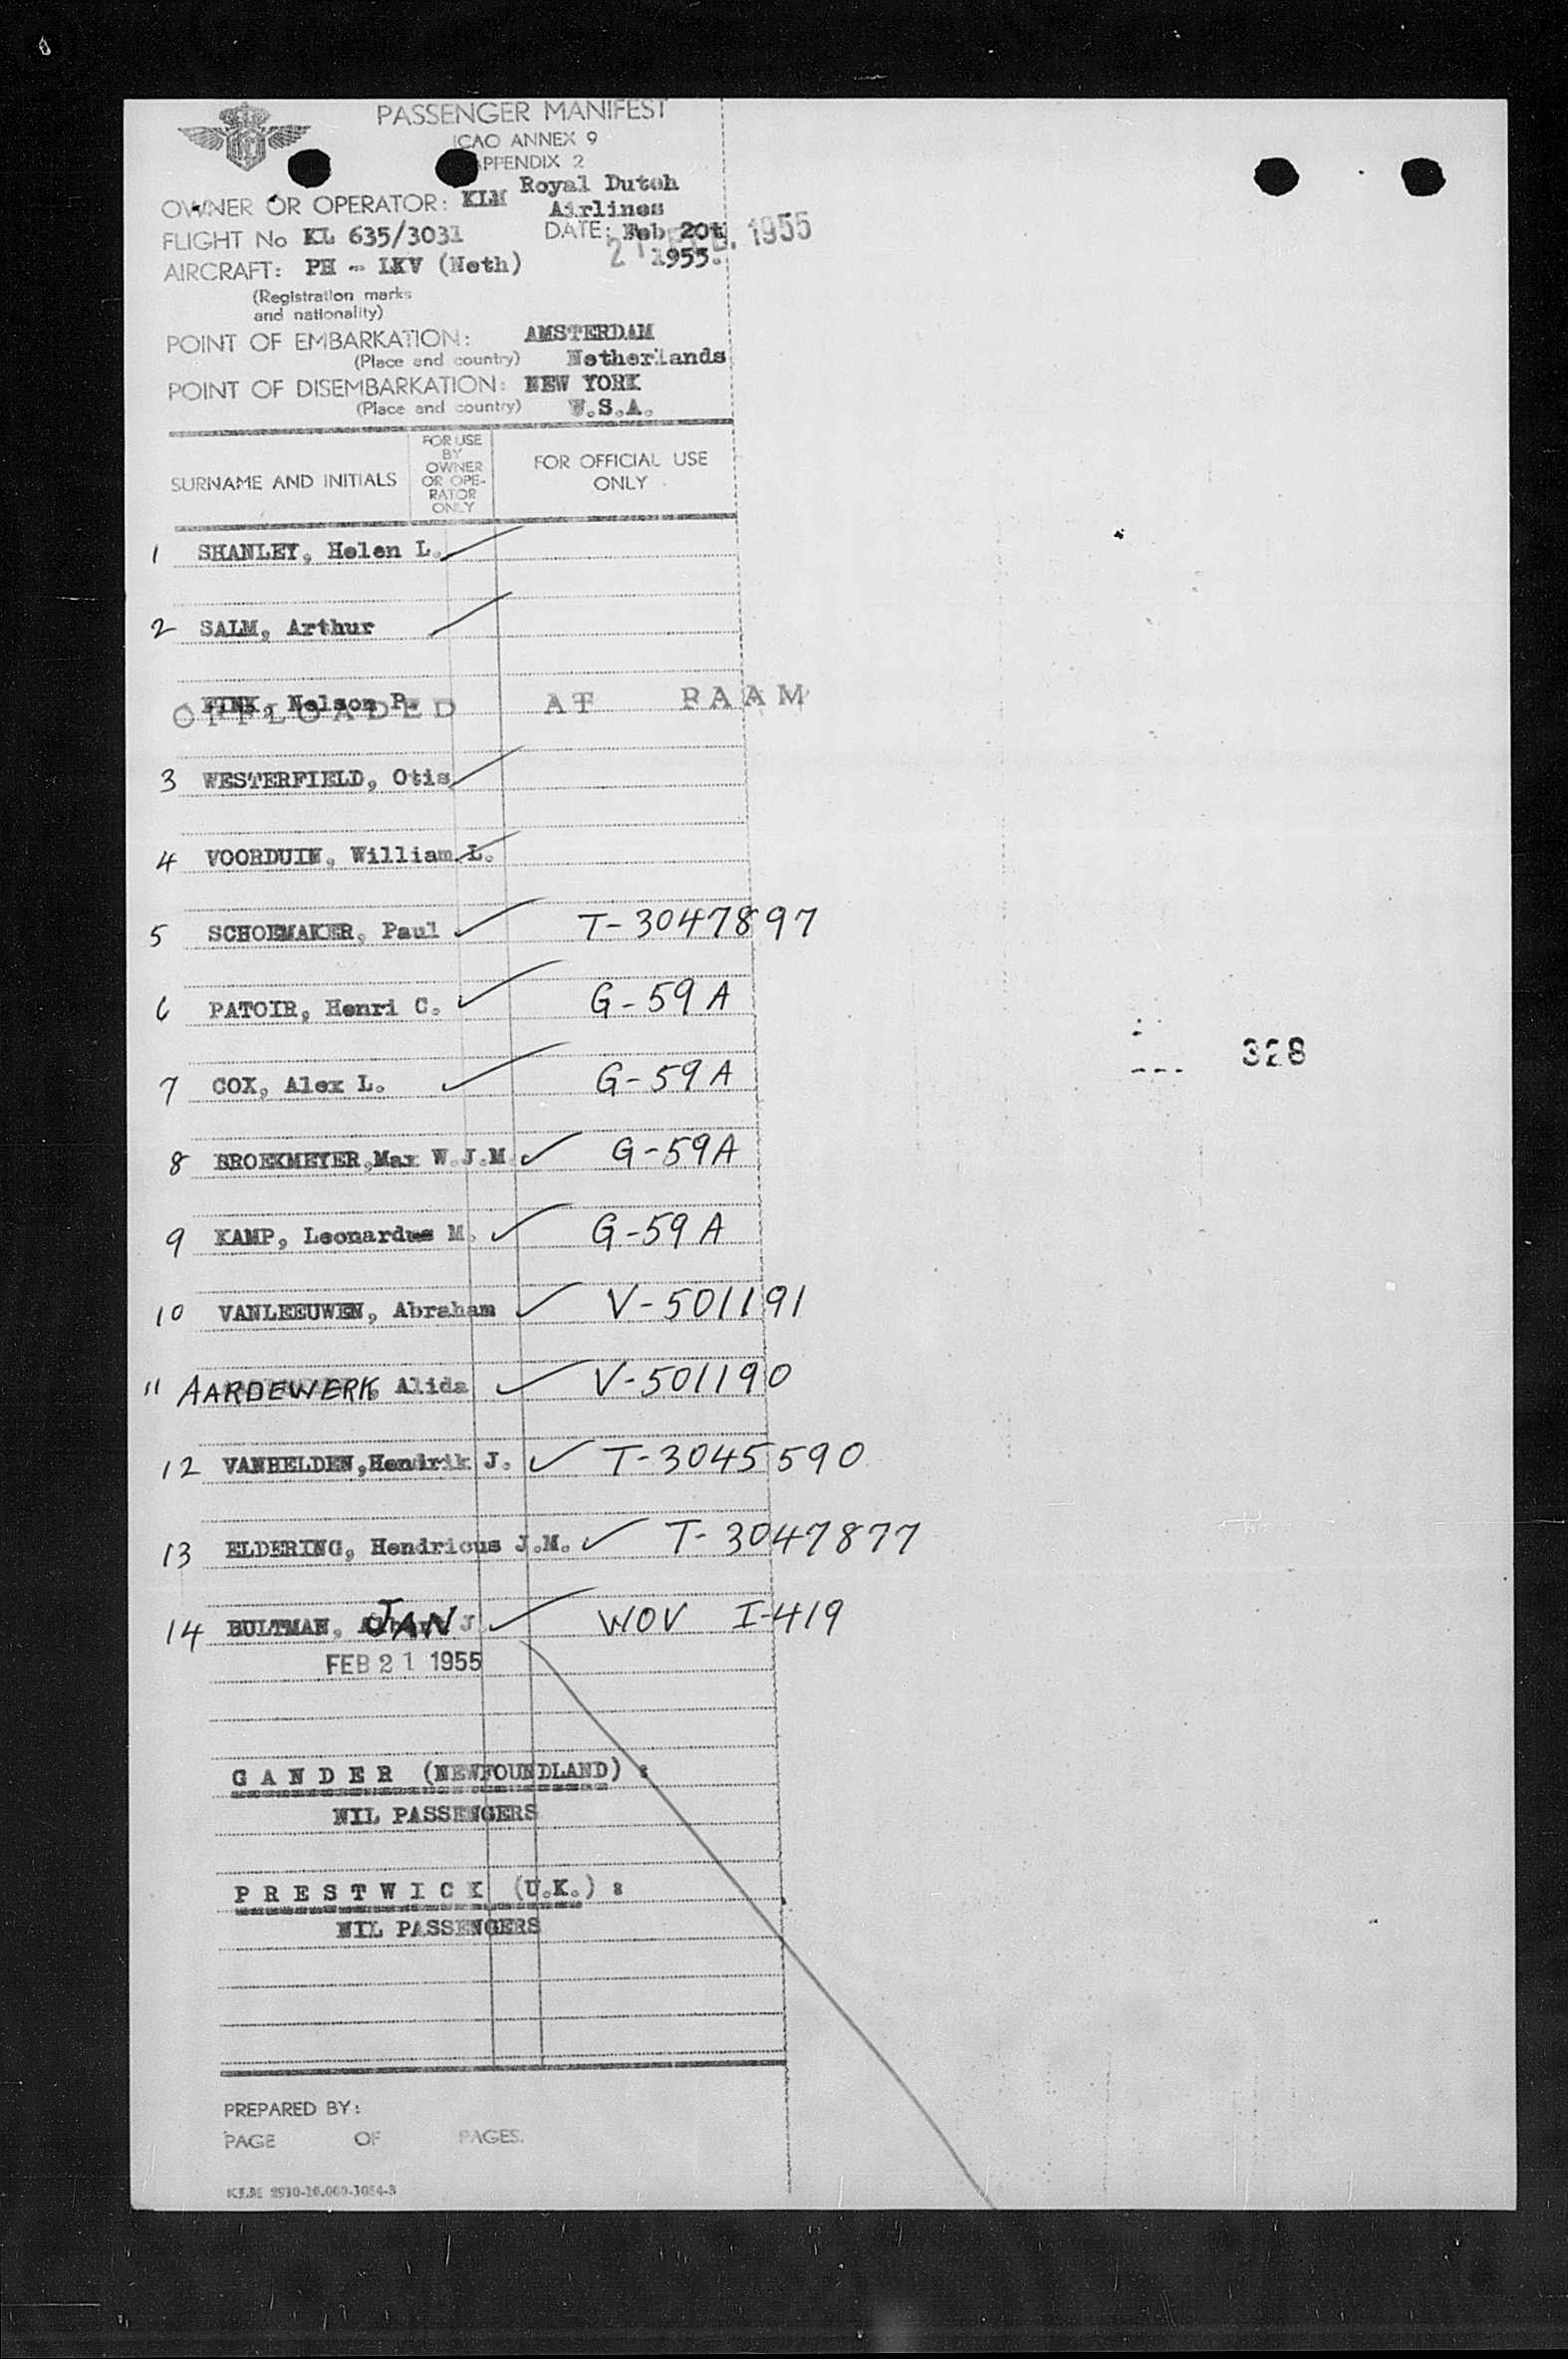 PASSENGER MANIFEST
ICAO ANNEX 9
APPENDIX 2
OWNER OR OPERATOR: KLM Royal Dutch
Airlines
FLIGHT No KL 635/3031 DATE: Feb 20t
1955.
21 FEB. 1955
AIRCRAFT: PH - LKV (Neth)
(Registration marks
and nationality)
POINT OF EMBARKATION: AMSTERDAM
(Place and country) Netherlands
POINT OF DISEMBARKATION: NEW YORK
(Place and country) U.S.A.
SURNAME AND INITIALS
FOR USE
BY
OWNER
OR OPE-
RATOR
ONLY
FOR OFFICIAL USE
ONLY
1 SHANLEY, Helen L.
2 SALM, Arthur
FINK, Nelson P.
OFFLOADED AT PAAM
3 WESTERFIELD, Otis
4 VOORDUIN, William L.
5 SCHOEMAKER, Paul T-3047897
6 PATOIR, Henri C. G-59A
7 COX, Alex L. G-59A
8 BROEKMEYER,Max W.J.M. G-59A
9 KAMP, Leonardus M. G-59A
10 VANLEEUWEN, Abraham V-501191
11 AARDEWERK, Alida V-501190
12 VANHELDEN,Hendrik J. T-3045590
13 ELDERING, Hendricus J.M. T-3047877
14 BULTMAN, JAN J WOV I-419
FEB 21 1955
GANDER (NEWFOUNDLAND) :
NIL PASSENGERS
PRESTWICK (U.K.) :
NIL PASSENGERS
PREPARED BY:
PAGE OF PAGES.
328